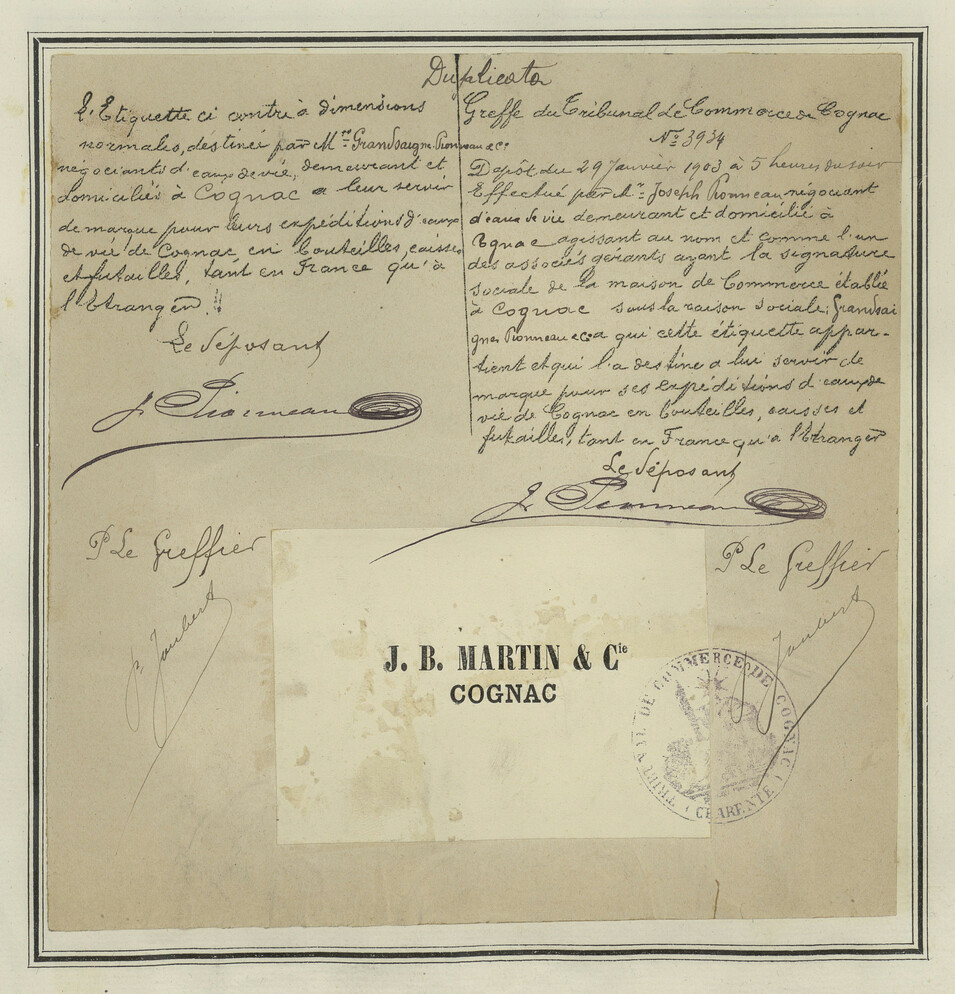 Duplicata
L'Etiquette ci contre à dimensions
normales, destinée par M.rs Grandsaigne Pionneau & Cº
négociants d'eaux de vie, demeurant et
domiciliés à Cognac a leur servir
de marque pour leurs expéditions d'eaux
de vie de Cognac en bouteilles, caisses
et futailles, tant en France qu'à
l'Etranger. !!
Le Déposant
J. Pionneau
P Le Greffier
Joubert
Greffe du Tribunal de Commerce de Cognac
Nº 3934
Dépôt du 29 Janvier 1903 à 5 heures du soir
Effectué par M.r Joseph Pionneau négociant
d'eaux de vie demeurant et domicilié à
Cognac agissant au nom et comme l'un
des associés gerants ayant la signature
sociale de la maison de Commerce établie
à Cognac sous la raison sociale: Grandsai
gnes Pionneau & Co a qui cette étiquette appar-
tient et qui l'a destine a lui servir de
marque pour ses expéditions d'eaux de
vie de Cognac en bouteilles, caisses et
futailles, tant en France qu'a l'Etranger
Le Déposant
J. Pionneau
P Le Greffier
Joubert
J. B. MARTIN & Cie
COGNAC
TRIBUNAL DE COMMERCE DE COGNAC
(CHARENTE)